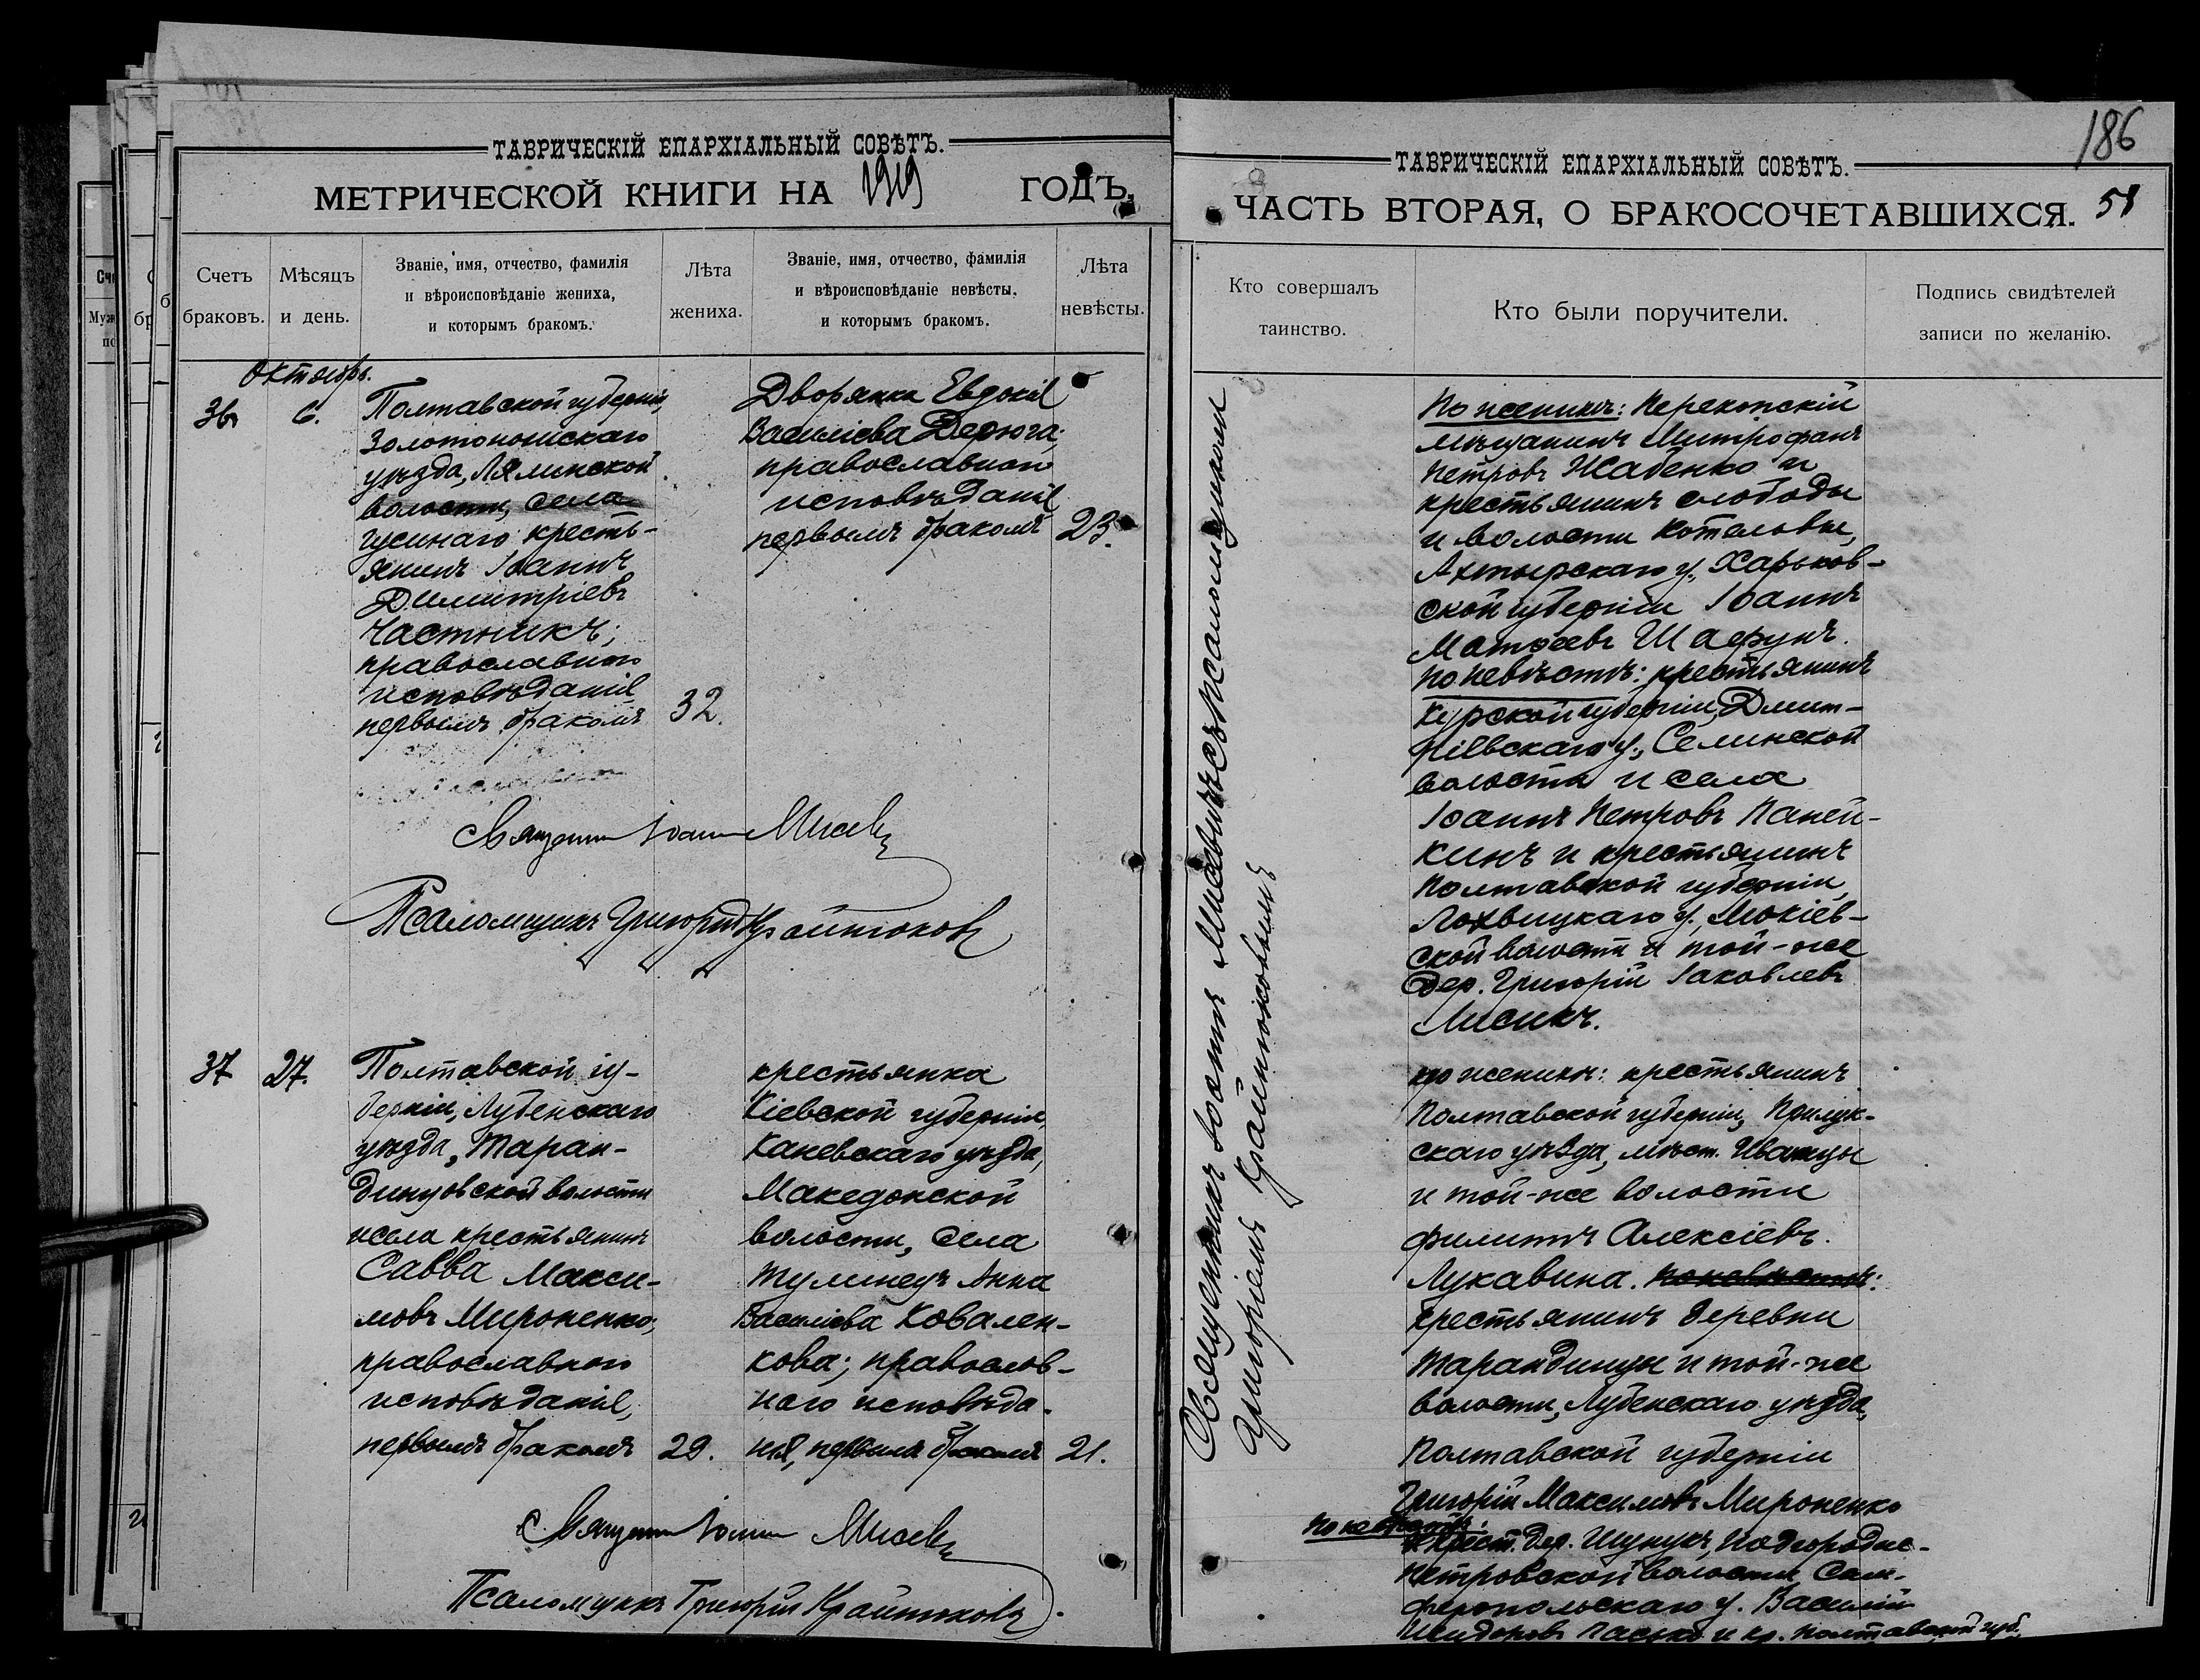 ТАВРИЧЕСКІЙ ЕПАРХІАЛЬНЫЙ СОВѢТЪ.
МЕТРИЧЕСКОЙ КНИГИ НА 1919 ГОДЪ,
Счетъ браковъ.
Мѣсяцъ и день.
Званіе, имя, отчество, фамилія
и вѣроисповѣданіе жениха,
и которымъ бракомъ.
Лѣта жениха.
Званіе, имя, отчество, фамилія
и вѣроисповѣданіе невѣсты,
и которымъ бракомъ.
Лѣта невѣсты.
Октябрь.
36
6.
Полтавской губерніи,
Золотоношскаго
уѣзда, Лялинской
волости, села
Гусинаго кресть-
янинъ Іоаннъ
Димитріевъ
Частникъ;
православнаго
исповѣданія
первымъ бракомъ
32.
Дворянка Евдокія
Василіева Дерюга;
православнаго
исповѣданія
первымъ бракомъ
23.
Священникъ Іоаннъ
Псаломщикъ Григорій Крайнюковъ
37
27.
Полтавской гу-
берніи, Лубенскаго
уѣзда, Таран-
динцовской волости
и села крестьянинъ
Савва Макси-
мовъ Мироненко;
православнаго
исповѣданія,
первымъ бракомъ
29.
крестьянка
Кіевской губерніи,
Каневскаго уѣзда,
Македонской
волости, села
Тулинецъ Анна
Василіева Ковален-
кова; православ-
наго исповѣда-
нія, первымъ бракомъ
21.
Священникъ Іоаннъ
Псаломщикъ Григорій Крайнюковъ
186
ТАВРИЧЕСКІЙ ЕПАРХІАЛЬНЫЙ СОВѢТЪ.
ЧАСТЬ ВТОРАЯ, О БРАКОСОЧЕТАВШИХСЯ. 58
Кто совершалъ таинство.
Кто были поручители.
Подпись свидѣтелей
записи по желанію.
Священникъ Іоаннъ съ псаломщикомъ
Григоріемъ Крайнюковымъ
По женихѣ: Перекопскій
мѣщанинъ Митрофанъ
Петровъ Жабенко и
крестьянинъ слободы
и волости Котельвы,
Ахтырскаго у., Харьков-
ской губерніи Іоаннъ
Матѳеевъ Шафунъ.
По невѣстѣ: крестьянинъ
Курской губерніи, Дмит-
ріевскаго у., Селинской
волости и села
Іоаннъ Петровъ Паней-
кинъ и крестьянинъ
Полтавской губерніи,
Лохвицкаго у., Мокіев-
ской волости и той-же
дер. Григорій Іаковлевъ
Лисикъ.
по женихѣ: крестьянинъ
Полтавской губерніи, Прилук-
скаго уѣзда, мѣст. Иваницы
и той-же волости
Филиппъ Алексіевъ
Лукавина. по невѣстѣ:
крестьянинъ деревни
Тарандинцы и той-же
волости, Лубенскаго уѣзда,
Полтавской губерніи
Григорій Максимовъ Мироненко
по невѣстѣ:
крест. дер. Шунукъ, Подгородне-
Петровской волости Сим-
феропольскаго у. Василій
Исидоровъ и кр. Полтавской губ.